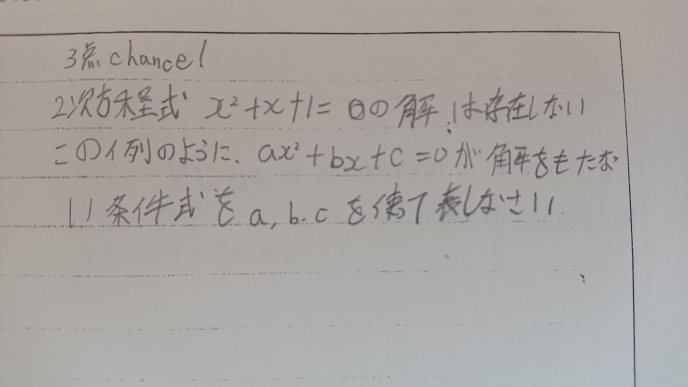 3点chance!
2次方程式 x²+x+1=0の解は存在しない
この例のように、ax²+bx+c=0が解をもたな
い条件式をa,b.cを使て表しなさい.